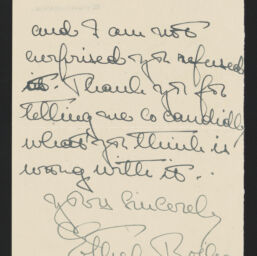 and I am not
surprised you refused
it. Thank you for
telling me so candidly
what you think is
wrong with it.
yours sincerely
Ethel